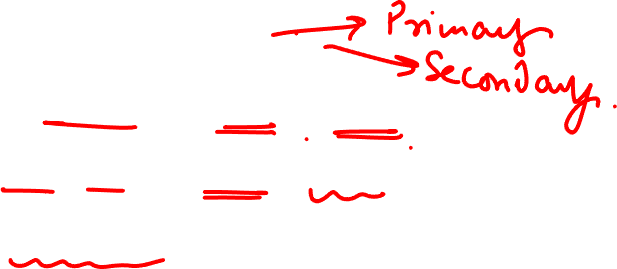 Primary
Secondary.